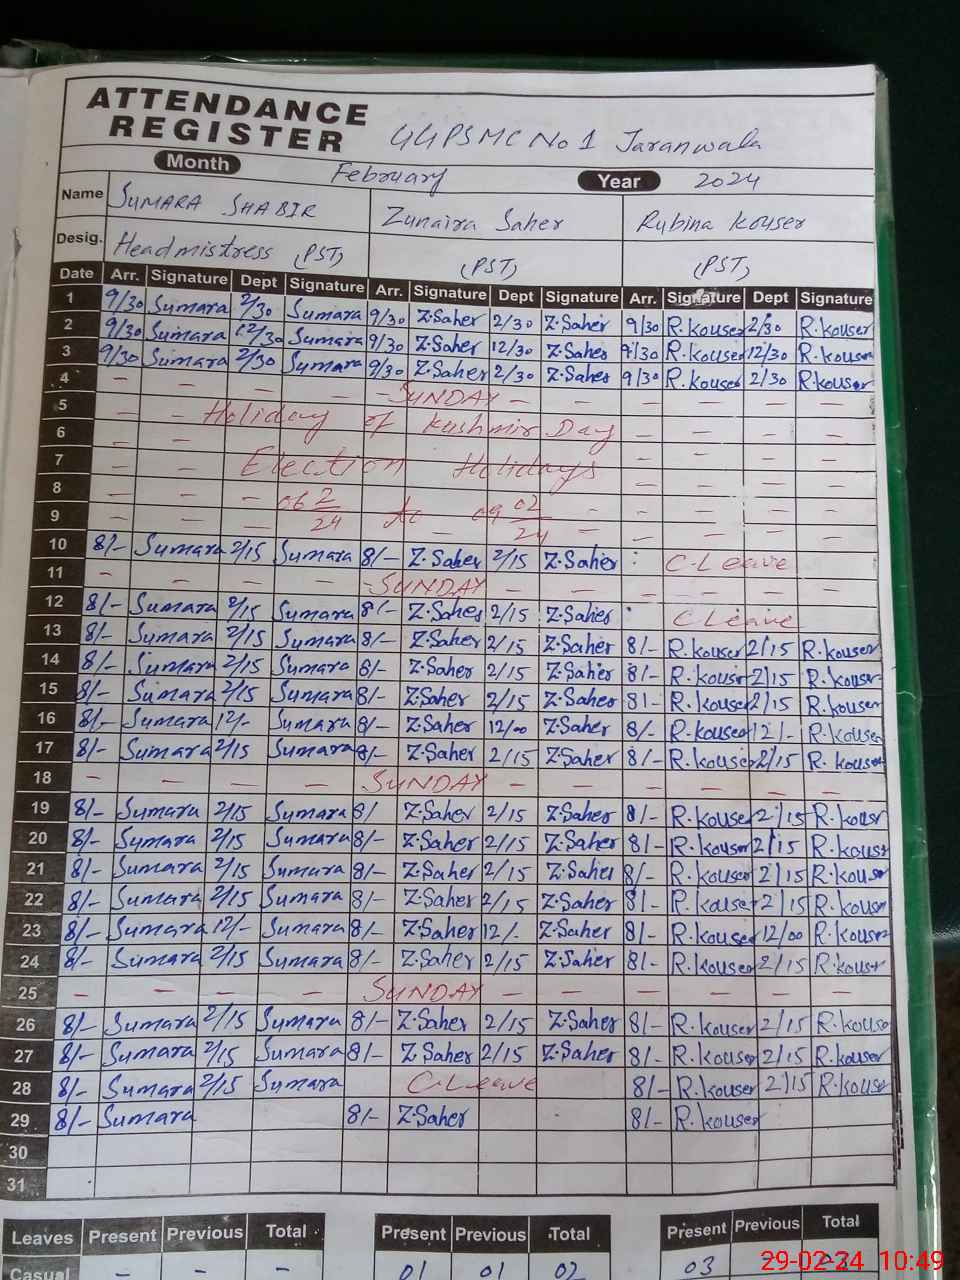 ATTENDANCE REGISTER GGPSMC No 1 Jaranwala
Month February Year 2024
Name SUMARA SHABIR Zunaira Saher Rubina Kouser
Desig. Headmistress (PST) (PST) (PST)
Date Arr. Signature Dept Signature Arr. Signature Dept Signature Arr. Signature Dept Signature
1 9/30 Sumara 2/30 Sumara 9/30 Z.Saher 2/30 Z.Saher 9/30 R.kouser 2/30 R.kouser
2 9/30 Sumara 12/30 Sumara 9/30 Z.Saher 12/30 Z.Saher 9/30 R.kouser 12/30 R.kouser
3 9/30 Sumara 2/30 Sumara 9/30 Z.Saher 2/30 Z.Saher 9/30 R.kouser 2/30 R.kouser
4 - - - - SUNDAY - - - - - -
5 - Holiday of Kashmir Day - - - -
6 - - - - - -
7 - - Election Holidays - - - -
8 - - 06 2/24 to 09 02/24 - - - -
9 - - - - - - - -
10 8/- Sumara 2/15 Sumara 8/- Z.Saher 2/15 Z.Saher : C.Leave
11 - - - - SUNDAY - - - - - -
12 8/- Sumara 2/15 Sumara 8/- Z.Saher 2/15 Z.Saher : C Leave
13 8/- Sumara 2/15 Sumara 8/- Z.Saher 2/15 Z.Saher 8/- R.kouser 2/15 R.kouser
14 8/- Sumara 2/15 Sumara 8/- Z.Saher 2/15 Z.Saher 8/- R.kouser 2/15 R.kouser
15 8/- Sumara 2/15 Sumara 8/- Z.Saher 2/15 Z.Saher 8/- R.kouser 2/15 R.kouser
16 8/- Sumara 12/- Sumara 8/- Z.Saher 12/00 Z.Saher 8/- R.kouser 12/- R.kouser
17 8/- Sumara 2/15 Sumara 8/- Z.Saher 2/15 Z.Saher 8/- R.kouser 2/15 R.kouser
18 - - - - SUNDAY - - - - - -
19 8/- Sumara 2/15 Sumara 8/ Z.Saher 2/15 Z.Saher 8/- R.kouser 2/15 R.kousr
20 8/- Sumara 2/15 Sumara 8/- Z.Saher 2/15 Z.Saher 8/- R.kouser 2/15 R.kousr
21 8/- Sumara 2/15 Sumara 8/- Z.Saher 2/15 Z.Saher 8/- R.kouser 2/15 R.kouser
22 8/- Sumara 2/15 Sumara 8/- Z.Saher 2/15 Z.Saher 8/- R.kouser 2/15 R.kouser
23 8/- Sumara 12/- Sumara 8/- Z.Saher 12/- Z.Saher 8/- R.kouser 12/00 R.kouser
24 8/- Sumara 2/15 Sumara 8/- Z.Saher 2/15 Z.Saher 8/- R.kouser 2/15 R.kousr
25 - - - - SUNDAY - - - - - -
26 8/- Sumara 2/15 Sumara 8/- Z.Saher 2/15 Z.Saher 8/- R.kouser 2/15 R.kouser
27 8/- Sumara 2/15 Sumara 8/- Z.Saher 2/15 Z.Saher 8/- R.kouser 2/15 R.kouser
28 8/- Sumara 2/15 Sumara C.Leave 8/- R.kouser 2/15 R.kouser
29 8/- Sumara 8/- Z.Saher 8/- R.kouser
30
31
Leaves Present Previous Total Present Previous Total Present Previous Total
Casual - - - 01 01 02 03
29-02-24 10:49